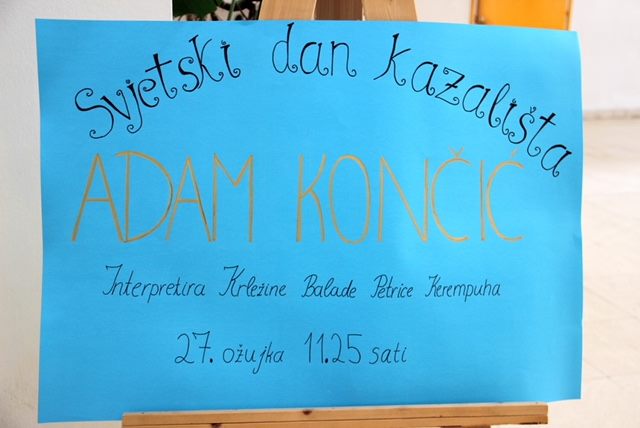 Svjetski dan kazališta
ADAM KONČIĆ
Interpretira Krležine Balade Petrice Kerempuha
27. ožujka 11.25 sati